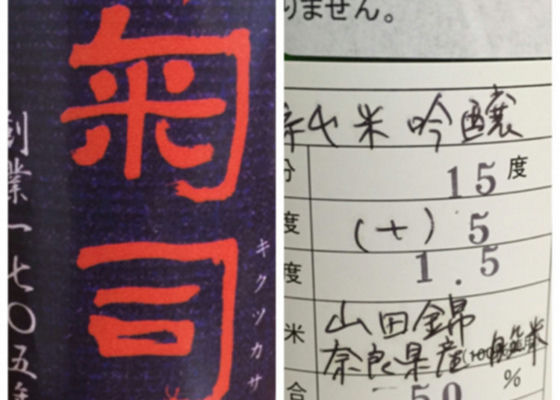 菊司
キクツカサ
創業一七〇五年
りません。
純米吟醸
分 15度
度 (+) 5
度 1.5
米 山田錦
奈良県産
合 50 %